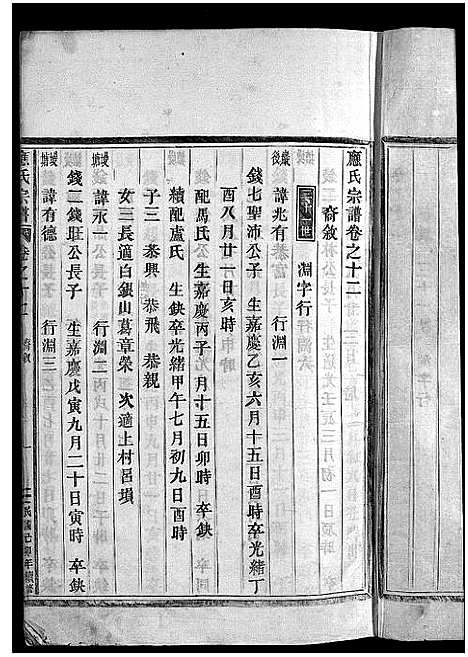 應氏宗譜卷之十二
裔敘
淵字行
後 諱兆有 行淵一
錢七聖沛公子 生嘉慶乙亥六月十五日酉時卒光緒丁
酉八月廿一日亥時
配馬氏 生嘉慶丙子 月十五日卯時 卒缺
續配盧氏 生缺卒光緒甲午七月初九日酉時
子三 恭興 恭飛 恭親
女三長適白銀山葛章榮 次適上村呂塤
諱永一 行淵二
錢二錢旺公長子 生嘉慶戊寅九月二十日寅時 卒缺
諱有德 行淵三
應氏宗譜 卷之十二